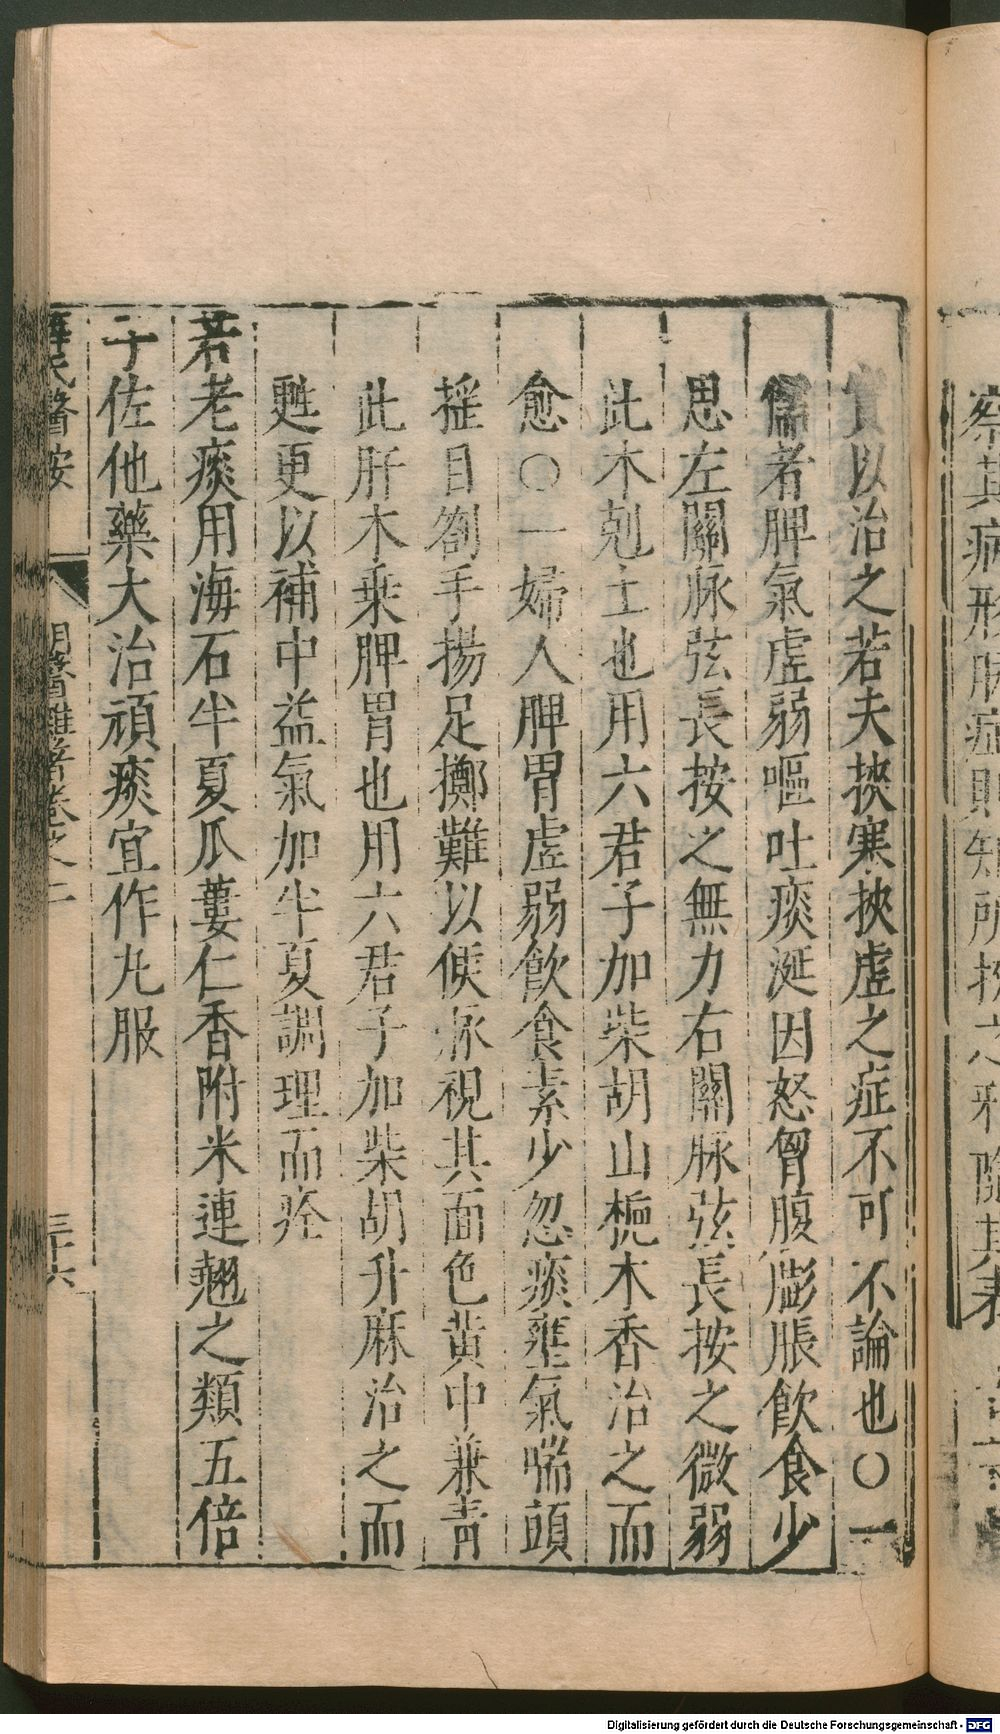 察其病形脉症則知所挾之邪隨其表
實以治之若夫挾寒挾虛之症不可不論也○一
儒者脾氣虛弱嘔吐痰涎因怒胷腹膨脹飲食少
思左關脉弦長按之無力右關脉弦長按之微弱
此木剋土也用六君子加柴胡山梔木香治之而
愈○一婦人脾胃虛弱飲食素少忽痰壅氣喘頭
揺目劄手揚足擲難以候脉視其面色黄中兼靑
此肝木乗脾胃也用六君子加柴胡升麻治之而
甦更以補中益氣加半夏調理而痊
若老痰用海石半夏瓜蔞仁香附米連翹之類五倍
子佐他藥大治頑痰宜作丸服
薛氏醫按
明醫雜著卷之二
三十六
Digitalisierung gefördert durch die Deutsche Forschungsgemeinschaft - DFG